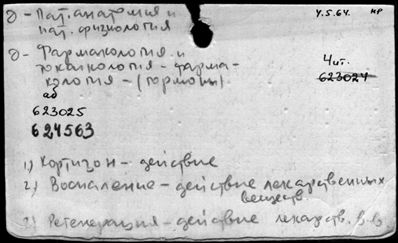 д - Пат. анатомия и
пат. физиология
4.5.64. кр
д - Фармакология и
токсикология - фарма-
кология - (гормоны)
аб
Чит.
623024
623025
624563
1) Кортизон - действие
2) Воспаление - действие лекарственных
веществ.
3) Регенерация - действие лекарств. в-в